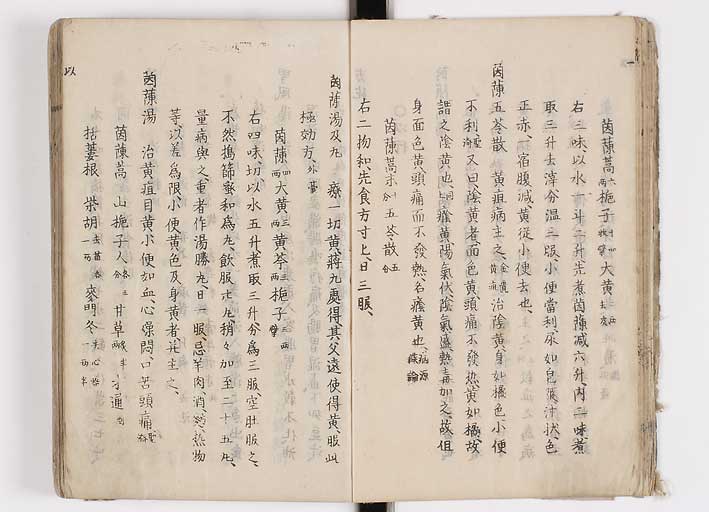 茵蔯蒿六両 梔子十四枚擘 大黄二両去皮
右三味以水一斗二升先煮茵蔯减六升内二味煮
取三升去滓分温三服小便當利尿如皂莢汁状色
正赤一宿腹减黄從小便去也
茵蔯五苓散 黄疸病主之金匱 治陰黄身如橘色小便
不利 又曰陰黄者面色黄頭痛不發熱黄如橘故
謂之陰黄也 陽氣伏陰氣盛熱毒加之故但
身面色黄頭痛而不發熱名癊黄也病源
茵蔯蒿末十分 五苓散五分
右二物和先食方寸匕日三服
茵蔯湯及丸 療一切黄蔣九處得其父遠使得黄服此
極効方外臺
茵蔯四両 大黄三両 黄芩三両 梔子三両擘
右四味切以水五升煮取三升分為三服空肚服之
不然搗篩蜜和為丸飲服廿丸稍々加至二十五丸
量病與之重者作湯勝丸日一服忌羊肉酒麪熱物
等以差為限小便黄色及身黄者并主之
茵蔯湯 治黄疸目黄小便如血心躁悶口苦頭痛
茵蔯蒿 山梔子人 甘草 木通
栝蔞根 柴胡 麥門冬
以